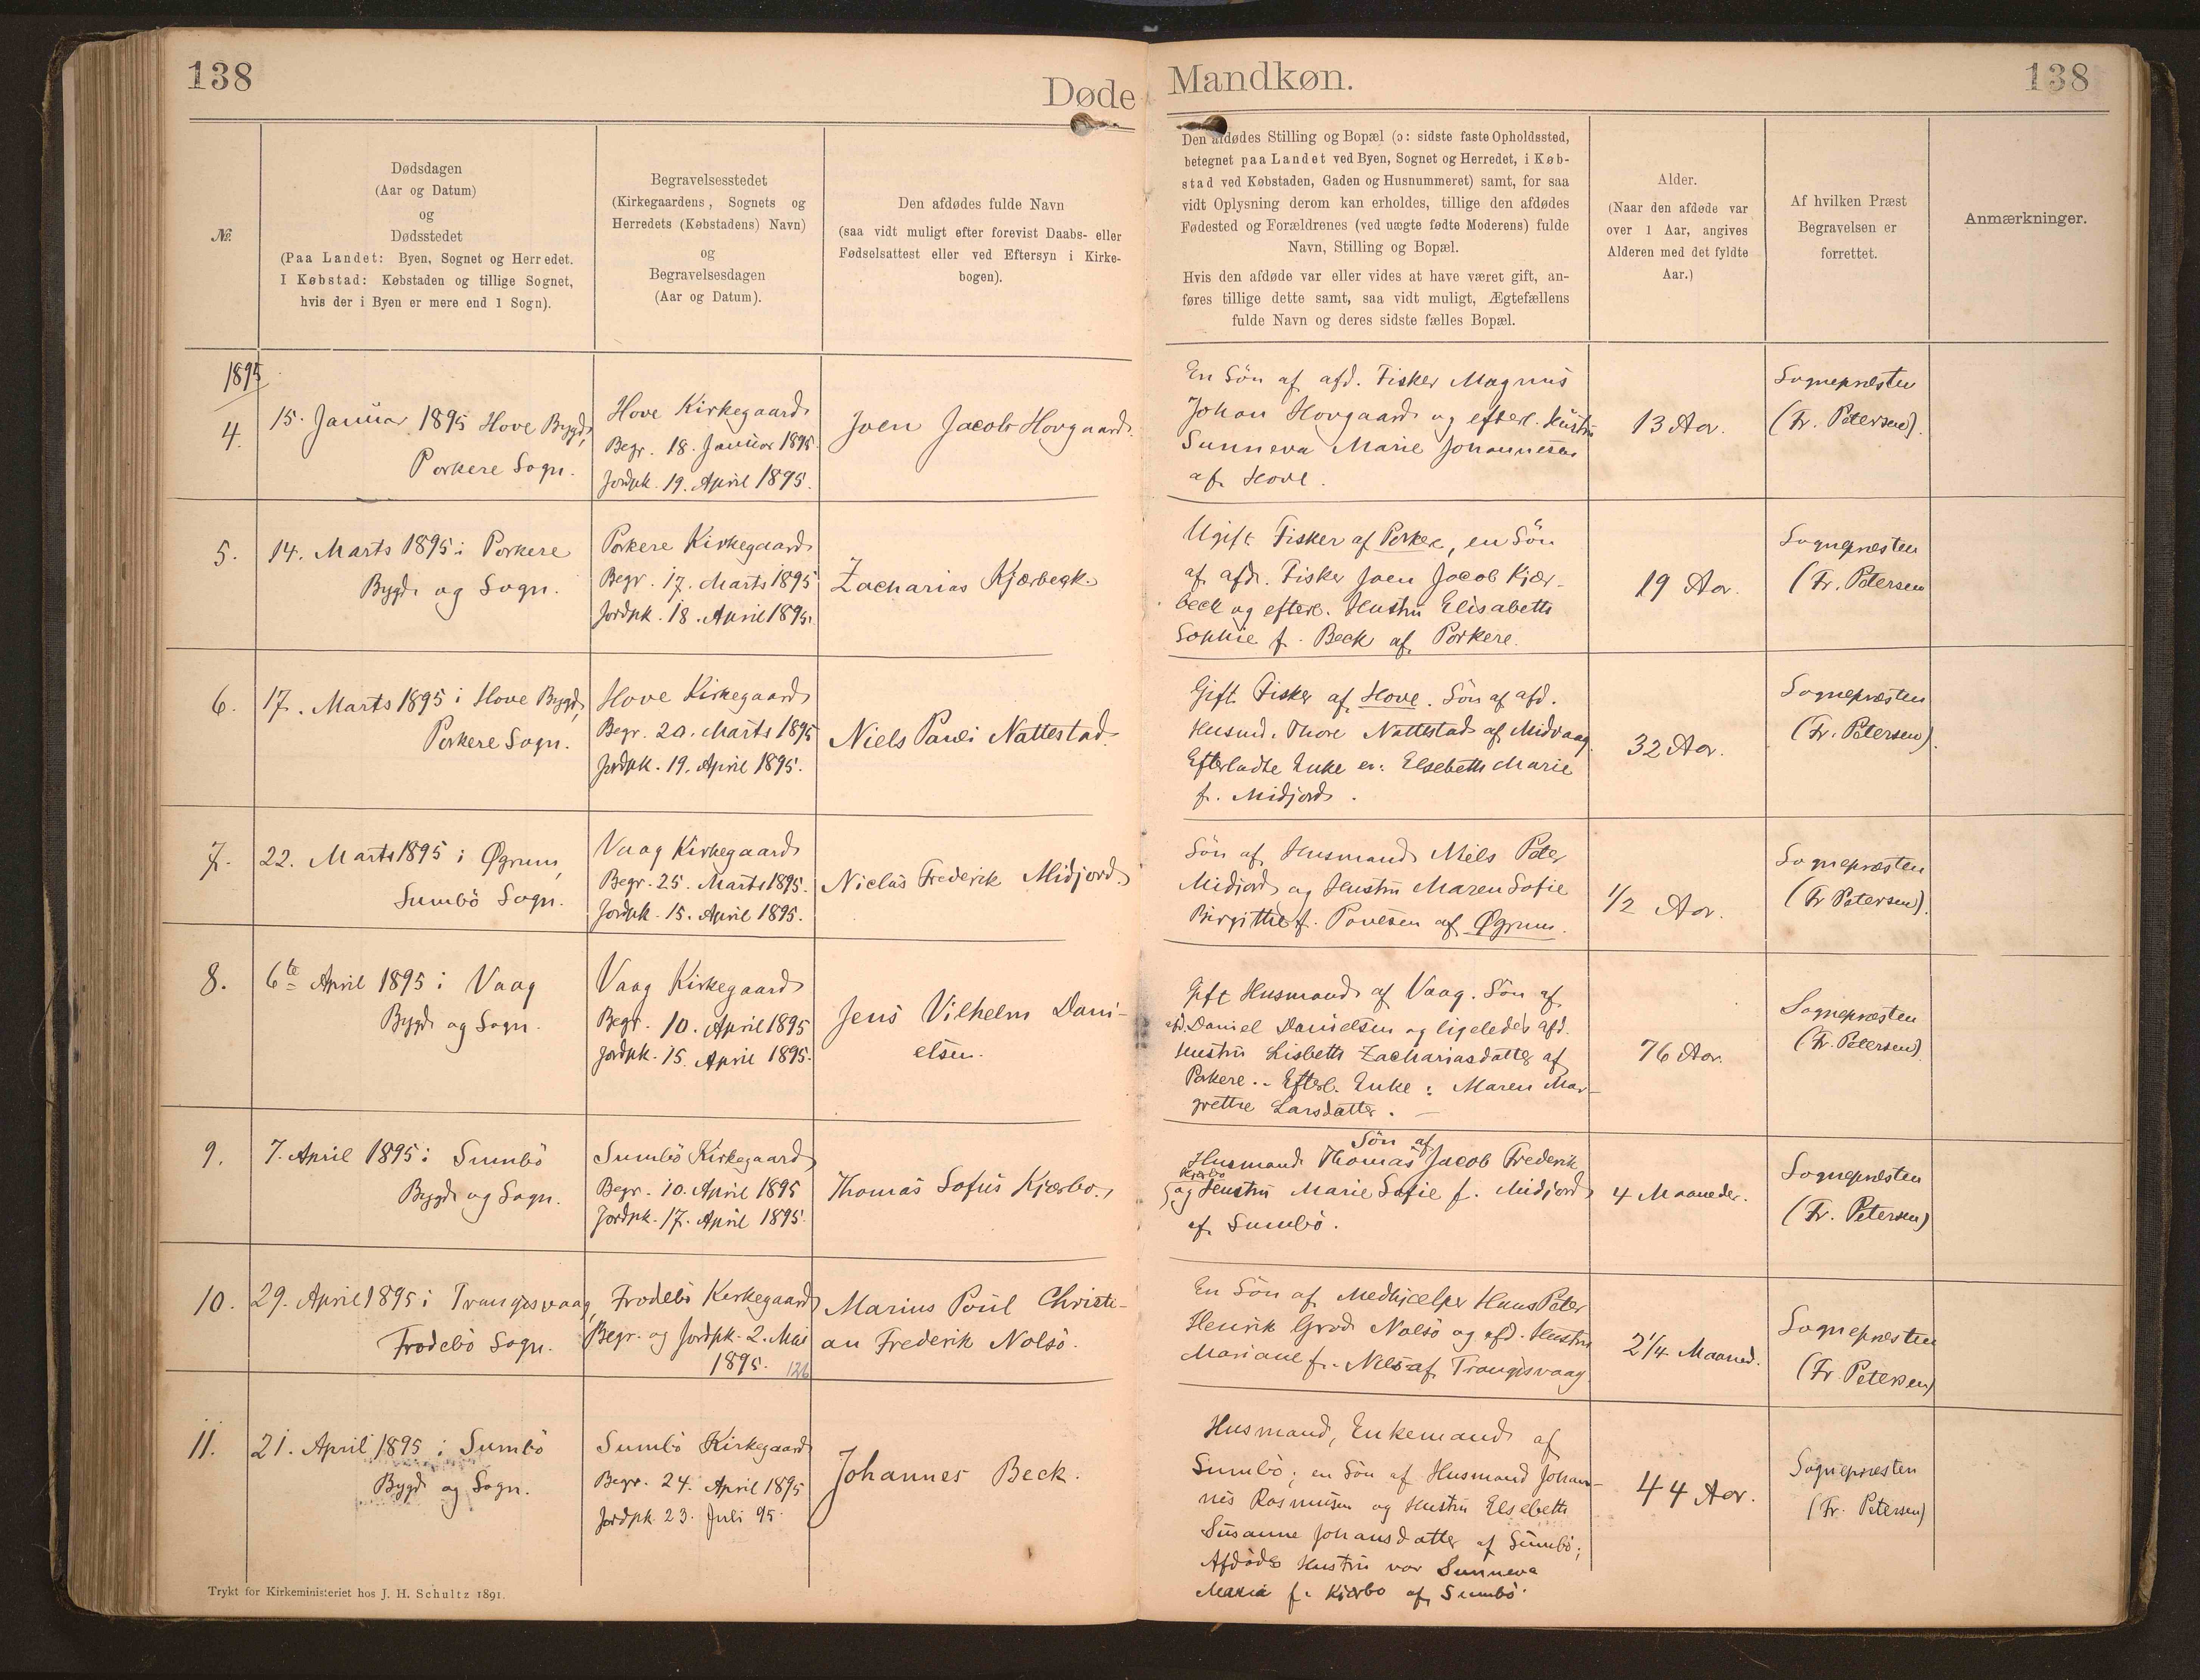 138
Døde
Mandkøn.
138
№.
Dødsdagen
(Aar og Datum)
og
Dødsstedet
(Paa Landet: Byen, Sognet og Herredet.
I Købstad: Købstaden og tillige Sognet,
hvis der i Byen er mere end 1 Sogn).
Begravelsesstedet
(Kirkegaardens, Sognets og
Herredets (Købstadens) Navn)
og
Begravelsesdagen
(Aar og Datum).
Den afdødes fulde Navn
(saa vidt muligt efter forevist Daabs- eller
Fødselsattest eller ved Eftersyn i Kirke-
bogen).
Den afdødes Stilling og Bopæl (ɔ: sidste faste Opholdssted,
betegnet paa Landet ved Byen, Sognet og Herredet, i Køb-
stad ved Købstaden, Gaden og Husnummeret) samt, for saa
vidt Oplysning derom kan erholdes, tillige den afdødes
Fødested og Forældrenes (ved uægte fødte Moderens) fulde
Navn, Stilling og Bopæl.
Hvis den afdøde var eller vides at have været gift, an-
føres tillige dette samt, saa vidt muligt, Ægtefællens
fulde Navn og deres sidste fælles Bopæl.
Alder.
(Naar den afdøde var
over 1 Aar, angives
Alderen med det fyldte
Aar.)
Af hvilken Præst
Begravelsen er
forrettet.
Anmærkninger.
1895
4.
15. Januar 1895 Hove Bygd,
Porkere Sogn.
Hove Kirkegaard
Begr. 18. Januar 1895.
Jordpk. 19. April 1895.
Joen Jacob Hovgaard.
En Søn af afd. Fisker Magnus
Johan Hovgaard og efterl. Hustru
Sunneva Marie Johannesen
af Hove.
13 Aar.
Sognepræsten
(Fr. Petersen).
5.
14. Marts 1895 i Porkere
Bygd og Sogn.
Porkere Kirkegaard
Begr. 17. Marts 1895
Jordpk. 18. April 1895.
Zacharias Kjærbeck.
Ugift Fisker af Porkere, en Søn
af afd. Fisker Joen Jacob Kjær-
beck og efterl. Hustru Elisabeth
Sophie f. Beck af Porkere.
19 Aar.
Sognepræsten
(Fr. Petersen
6.
17. Marts 1895 i Hove Bygd,
Porkere Sogn.
Hove Kirkegaard
Begr. 20. Marts 1895
Jordpk. 19. April 1895.
Niels Pauli Nattestad.
Gift Fisker af Hove. Søn af afd.
Husmd. Thore Nattestad af Midvaag.
Efterladte Enke er: Elsebeth Marie
f. Midjord.
32 Aar.
Sognepræsten
(Fr. Petersen).
7.
22. Marts 1895 i Øgrum,
Sumbö Sogn.
Vaag Kirkegaard
Begr. 25. Marts 1895.
Jordpk. 15. April 1895.
Niclas Frederik Midjord.
Søn af Husmand Niels Peter
Midjord og Hustru Maren Sofie
Birgitthe f. Poulsen af Øgrum.
1/2 Aar.
Sognepræsten
(Fr Petersen).
8.
6te April 1895 i Vaag
Bygd og Sogn.
Vaag Kirkegaard
Begr. 10. April 1895
Jordpk. 15. April 1895.
Jens Vilhelm Dani-
elsen.
Gift Husmand af Vaag. Søn af
afd. Daniel Danielsen og ligeledes afd.
Hustru Lisbeth Zachariasdatter af
Porkere. - Efterl. Enke: Maren Mar-
grethe Larsdatter. -
76 Aar.
Sognepræsten
(Fr. Petersen)
9.
7. April 1895 i Sumbö
Bygd og Sogn.
Sumbö Kirkegaard
Begr. 10. April 1895
Jordpk. 17. April 1895.
Thomas Sofus Kjærbo.
Søn af
Husmand Thomas Jacob Frederik
Kjærbo
og Hustru Marie Sofie f. Midjord
af Sumbö.
4 Maaneder.
Sognepræsten
(Fr. Petersen)
10.
29. April 1895 i Trangisvaag,
Frodebö Sogn.
Frodebö Kirkegaard
Begr. og Jordpk. 2. Mai
1895. 126
Marius Poul Christi-
an Frederik Nolsö.
En Søn af Medhjælper Hans Peter
Henrik Grød Nolsö og afd. Hustru
Mariane f. Niels af Trangisvaag
2 1/4 Maaned.
Sognepræsten
(Fr. Petersen)
11.
21. April 1895 i Sumbö
Bygd og Sogn.
Sumbö Kirkegaard
Begr. 24. April 1895
Jordpk. 23. Juli 95.
Johannes Beck.
Husmand, Enkemand af
Sumbö; en Søn af Husmand Johan-
nis Rasmusen og Hustru Elsebeth
Susanne Johansdatter af Sumbö;
Afdødes Hustru var Sunneva
Maria f. Kjærbo af Sumbö.
44 Aar.
Sognepræsten
(Fr. Petersen)
Trykt for Kirkeministeriet hos J. H. Schultz 1891.